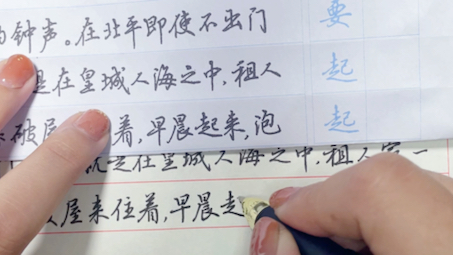 钟声。在北平即使不出门 要
是在皇城人海之中,租人 起
破屋 着,早晨起来,泡 起
是在皇城人海之中,租人家一
屋来住着,早晨起